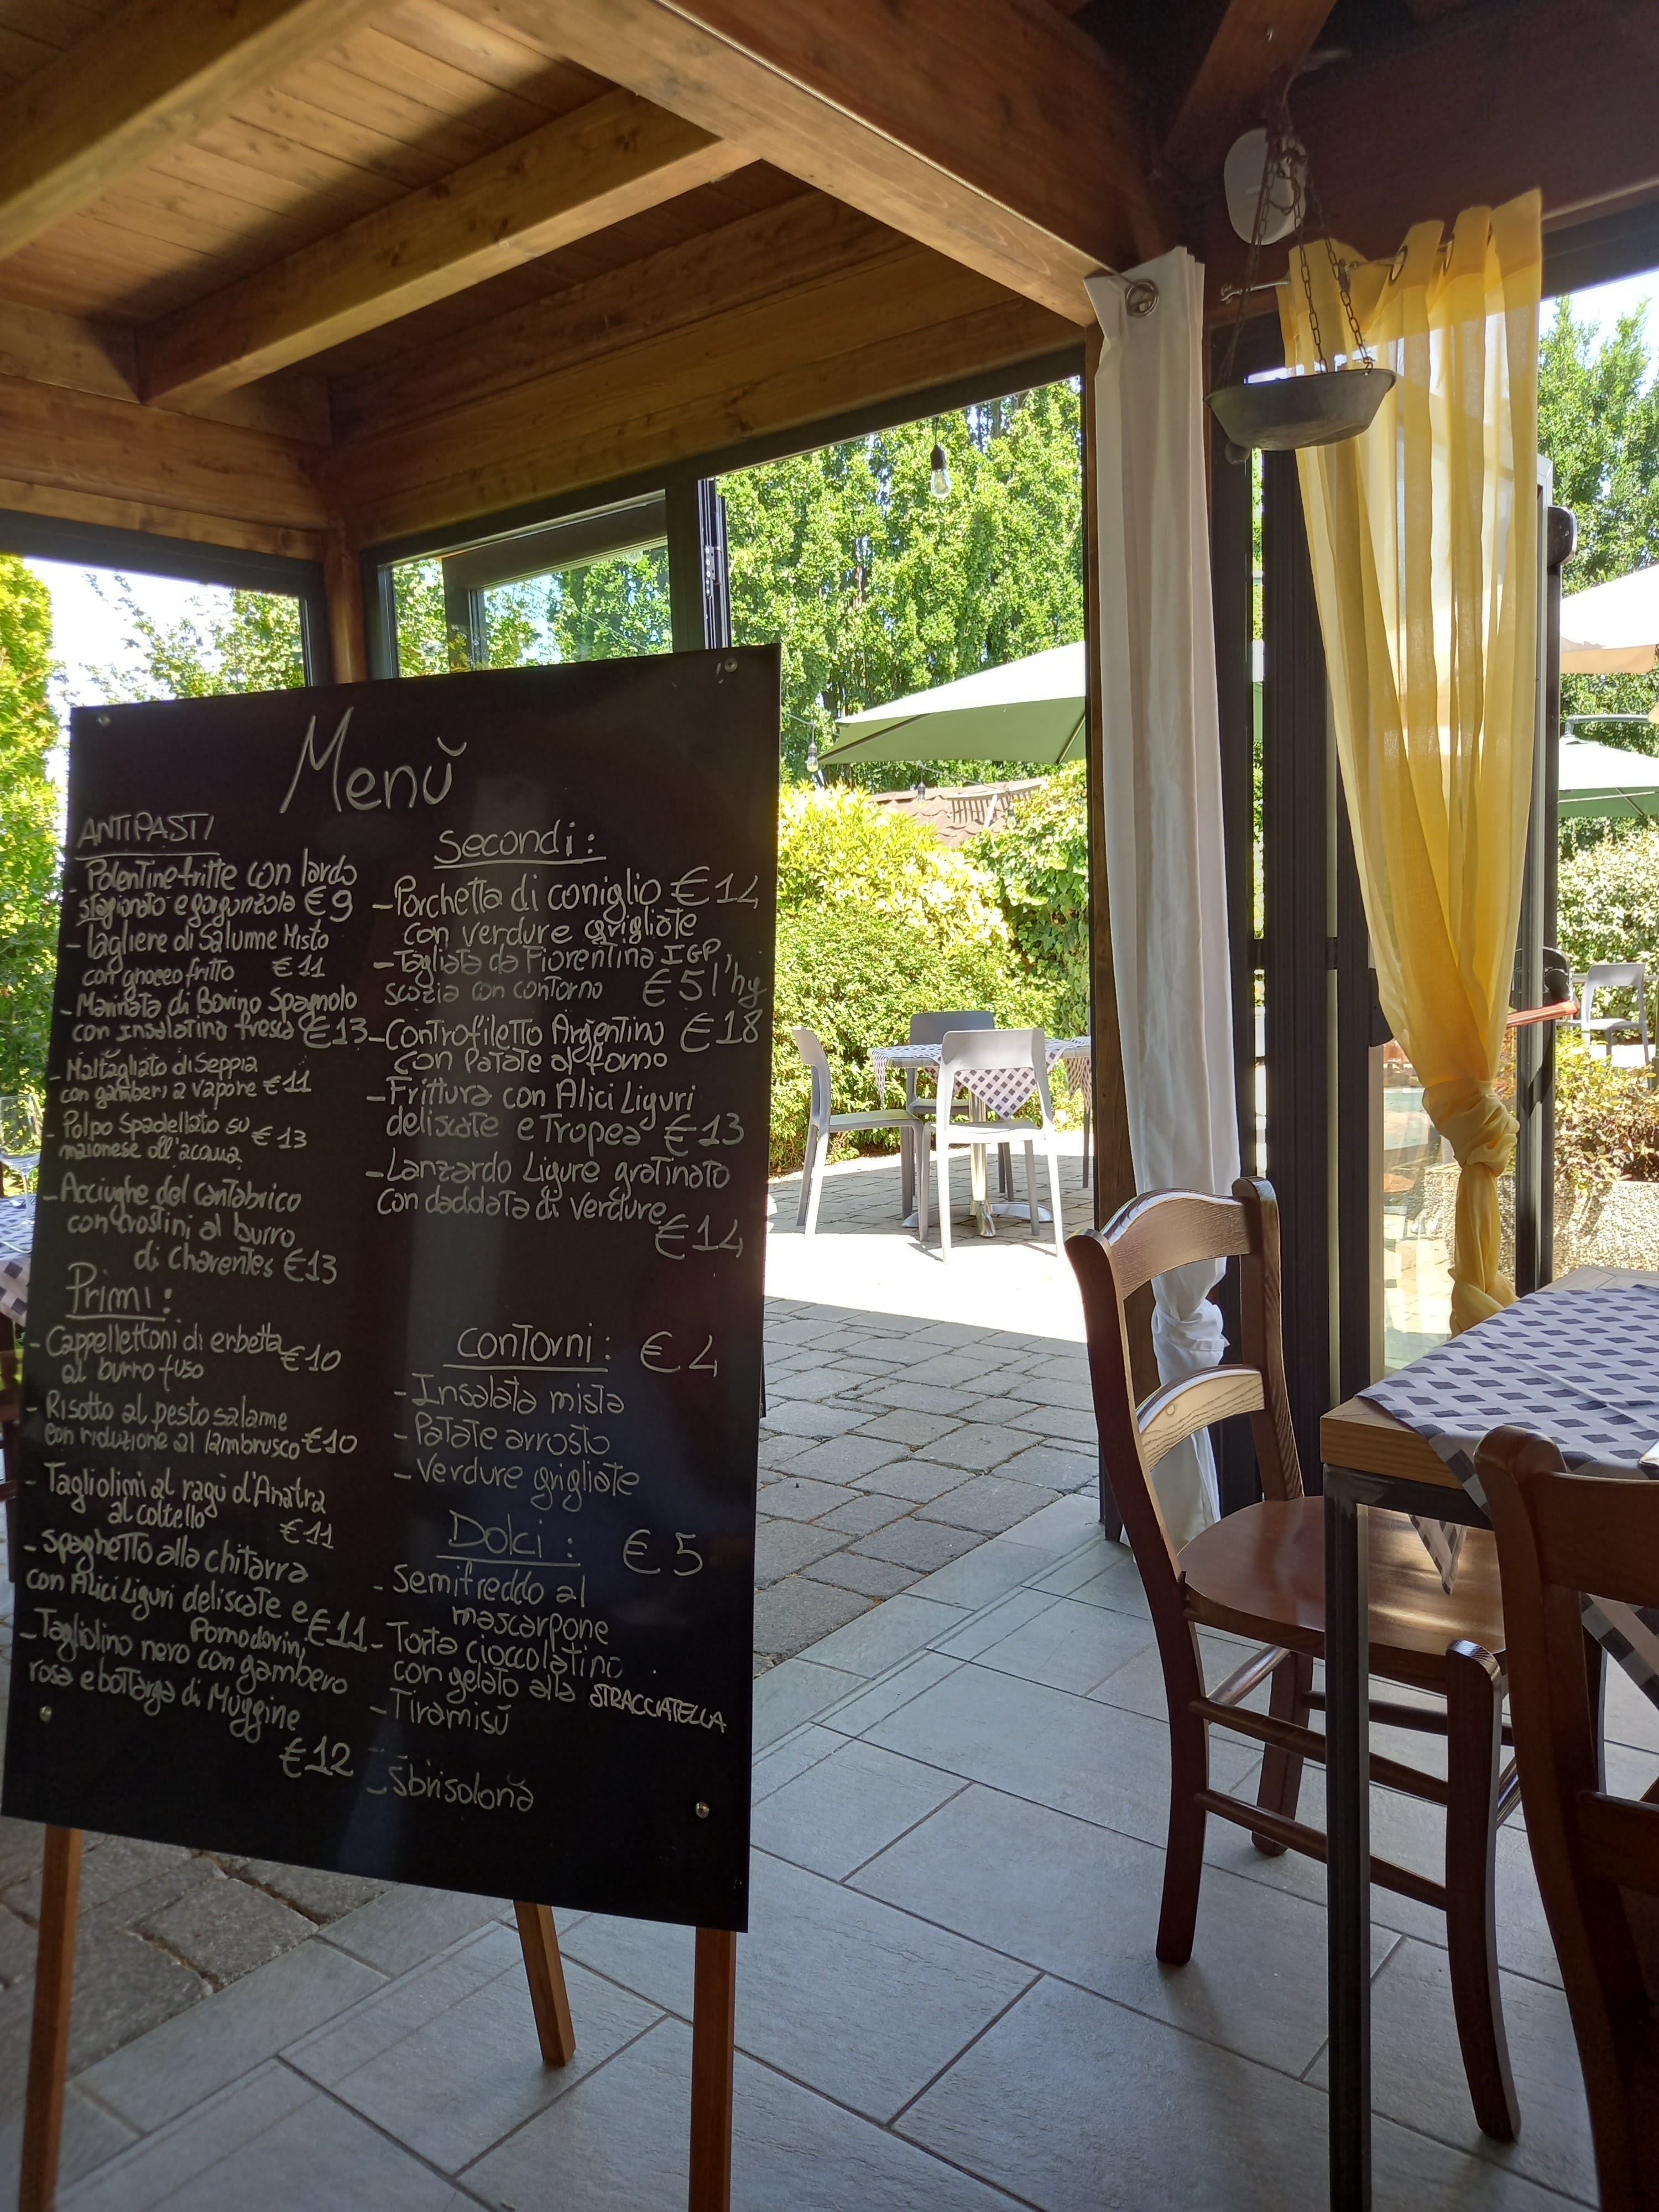 Menŭ
ANTIPASTI
- Polentine fritte con lardo
stagionato e gorgonzola €9
- Tagliere di Salume Misto
con gnocco fritto €11
- Marinata di Bovino Spagnolo
con insalatina fresca €13
- Maltagliato di Seppia
con gamberi a vapore €11
- Polpo Spadellato su
maionese all'acqua €13
- Acciughe del Cantabrico
con crostini al burro
di Charentes €13
Primi:
- Cappellettoni di erbetta
al burro fuso €10
- Risotto al pesto salame
con riduzione al lambrusco €10
- Tagliolini al ragù d'Anatra
al coltello €11
- Spaghetto alla chitarra
con Alici Liguri deliscate e
Pomodorini €11
- Tagliolino nero con gambero
rosa e bottarga di Muggine
€12
Secondi:
- Porchetta di coniglio €14
con verdure grigliate
- Tagliata da Fiorentina IGP,
scozia con contorno €5 l'hg
- Controfiletto Argentino €18
con Patate al forno
- Frittura con Alici Liguri
deliscate e Tropea €13
- Lanzardo Ligure gratinato
con dadolata di verdure
€14
Contorni: €4
- Insalata mista
- Patate arrosto
- Verdure grigliate
Dolci: €5
- Semifreddo al
mascarpone
- Torta cioccolatino
con gelato alla STRACCIATELLA
- Tiramisŭ
- Sbrisolona